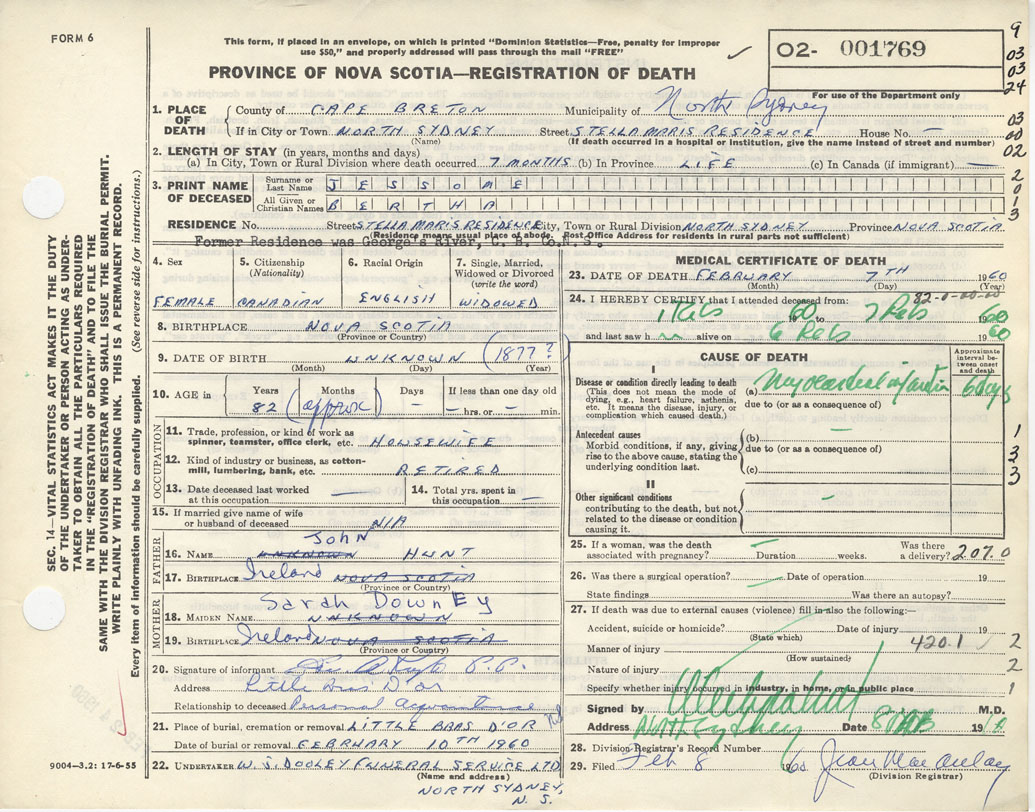 FORM 6
This form, if placed in an envelope, on which is printed "Dominion Statistics—Free, penalty for improper
use $50," and properly addressed will pass through the mail "FREE"
O2- 001769
For use of the Department only
PROVINCE OF NOVA SCOTIA—REGISTRATION OF DEATH
9
03
03
24
03
00
02
2
0
1
3
1. PLACE OF DEATH
County of CAPE BRETON Municipality of North Sydney
If in City or Town NORTH SYDNEY Street STELLA MARIS RESIDENCE House No. —
(Name) (If death occurred in a hospital or institution, give the name instead of street and number)
2. LENGTH OF STAY (in years, months and days)
(a) In City, Town or Rural Division where death occurred 7 MONTHS (b) In Province LIFE (c) In Canada (if immigrant) —
3. PRINT NAME OF DECEASED
Surname or Last Name JESSOME
All Given or Christian Names BERTHA
RESIDENCE No. Street STELLA MARIS RESIDENCE City, Town or Rural Division NORTH SYDNEY Province NOVA SCOTIA
(Residence means usual place of abode. Post Office Address for residents in rural parts not sufficient)
Former Residence was George's River, C. B. Co.N.S.
4. Sex
FEMALE
5. Citizenship
(Nationality)
CANADIAN
6. Racial Origin
ENGLISH
7. Single, Married,
Widowed or Divorced
(write the word)
WIDOWED
8. BIRTHPLACE NOVA SCOTIA
(Province or Country)
9. DATE OF BIRTH UNKNOWN (1877?
(Month) (Day) (Year)
10. AGE in
Years Months Days If less than one day old
82 (approx) — — hrs. or — min.
OCCUPATION
11. Trade, profession, or kind of work as
spinner, teamster, office clerk, etc. HOUSEWIFE
12. Kind of industry or business, as cotton-
mill, lumbering, bank, etc. RETIRED
13. Date deceased last worked
at this occupation —
14. Total yrs. spent in
this occupation —
15. If married give name of wife
or husband of deceased N/A
FATHER
John
16. NAME UNKNOWN HUNT
17. BIRTHPLACE Ireland NOVA SCOTIA
(Province or Country)
MOTHER
Sarah Downey
18. MAIDEN NAME UNKNOWN
19. BIRTHPLACE Ireland NOVA SCOTIA
(Province or Country)
20. Signature of informant P.P.
Address Little Bras D'or
Relationship to deceased Personal Acquaintance
21. Place of burial, cremation or removal LITTLE BRAS D'OR
Date of burial or removal FEBRUARY 10TH 1960
22. UNDERTAKER W. J. DOOLEY FUNERAL SERVICE LTD
(Name and address)
NORTH SYDNEY,
N. S.
9004—3.2: 17-6-55
MEDICAL CERTIFICATE OF DEATH
23. DATE OF DEATH FEBRUARY 7TH 1960
(Month) (Day) (Year)
82-0-00-00
24. I HEREBY CERTIFY that I attended deceased from:
1 Feb 1960 to 7 Feb 1960
and last saw h alive on 6 Feb 1960
CAUSE OF DEATH
Approximate
interval be-
tween onset
and death
I
Disease or condition directly leading to death
(This does not mean the mode of
dying, e.g., heart failure, asthenia,
etc. It means the disease, injury, or
complication which caused death.)
(a) Myocardial infarction 6 days
due to (or as a consequence of)
Antecedent causes
Morbid conditions, if any, giving
rise to the above cause, stating the
underlying condition last.
(b) —
due to (or as a consequence of)
(c)
1
3
3
II
Other significant conditions
contributing to the death, but not
related to the disease or condition
causing it.
25. If a woman, was the death
associated with pregnancy? — Duration weeks.
Was there
a delivery? 207.0
26. Was there a surgical operation? — Date of operation 19
State findings Was there an autopsy?
27. If death was due to external causes (violence) fill in also the following:—
Accident, suicide or homicide? Date of injury 19
(State which)
Manner of injury 420.1
(How sustained)
Nature of injury
Specify whether injury occurred in industry, in home, or in public place
2
2
1
Signed by M.D.
Address North Sydney Date 8 Feb 19
28. Division Registrar's Record Number
29. Filed Feb 8 1960 Jean MacAulay
(Division Registrar)
SEC. 14—VITAL STATISTICS ACT MAKES IT THE DUTY
OF THE UNDERTAKER OR PERSON ACTING AS UNDER-
TAKER TO OBTAIN ALL THE PARTICULARS REQUIRED
IN THE "REGISTRATION OF DEATH" AND TO FILE THE
SAME WITH THE DIVISION REGISTRAR WHO SHALL ISSUE THE BURIAL PERMIT.
WRITE PLAINLY WITH UNFADING INK. THIS IS A PERMANENT RECORD.
Every item of information should be carefully supplied. (See reverse side for instructions.)